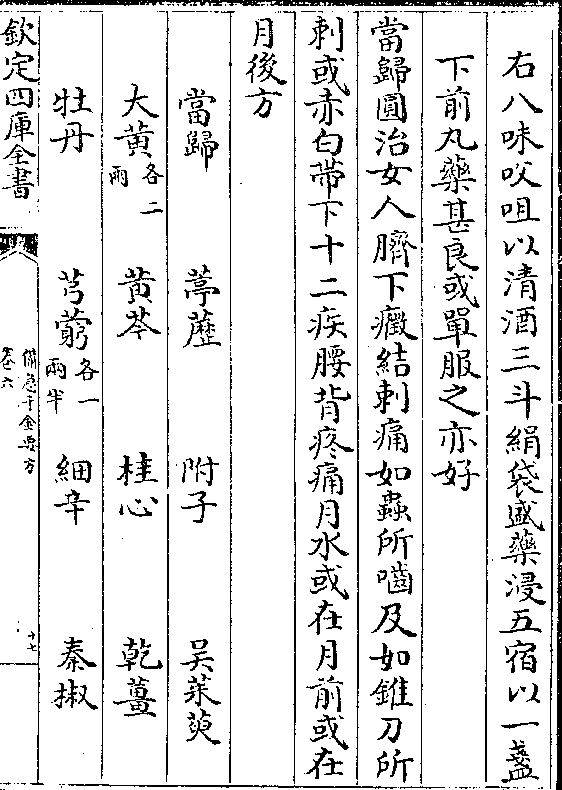 右八味㕮咀以清酒三斗絹袋盛藥浸五宿以一盞
下前丸藥甚良或單服之亦好
當歸圓治女人臍下癥結刺痛如蟲所嚙及如錐刀所
刺或赤白帶下十二疾腰背疼痛月水或在月前或在
月後方
當歸 葶藶 附子 吴茱萸
大黄各二兩 黄芩 桂心 乾薑
牡丹 芎藭各一兩半 細辛 秦椒
欽定四庫全書
備急千金要方
卷六
十七